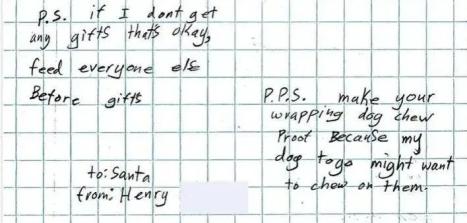 P.S. if I dont get
any gifts that's okay,
feed everyone els
Before gifts
P.P.S. make your
wrapping dog chew
Proof Because my
dog toga might want
to chew on them.
to: Santa
from: Henry